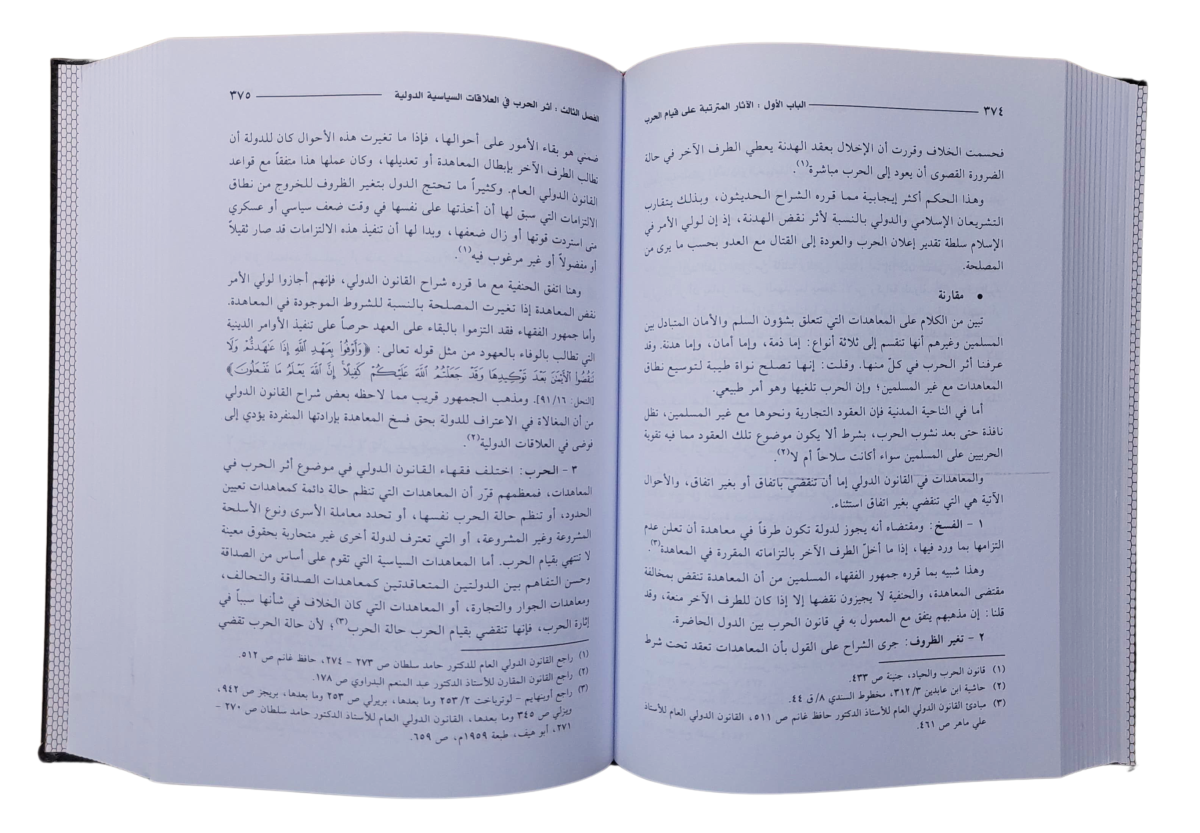 ٣٧٤ الباب الأول : الآثار المترتبة على قيام الحرب
فحسمت الخلاف وقررت أن الإخلال بعقد الهدنة يعطي الطرف الآخر في حالة
الضرورة القصوى أن يعود إلى الحرب مباشرة(١).
وهذا الحكم أكثر إيجابية مما قرره الشراح الحديثون، وبذلك يتقارب
التشريعان الإسلامي والدولي بالنسبة لأثر نقض الهدنة، إذ إن لولي الأمر في
الإسلام سلطة تقدير إعلان الحرب والعودة إلى القتال مع العدو بحسب ما يرى من
المصلحة.
• مقارنة
تبين من الكلام على المعاهدات التي تتعلق بشؤون السلم والأمان المتبادل بين
المسلمين وغيرهم أنها تنقسم إلى ثلاثة أنواع: إما ذمة، وإما أمان، وإما هدنة. وقد
عرفنا أثر الحرب في كلّ منها. وقلت: إنها تصلح نواة طيبة لتوسيع نطاق
المعاهدات مع غير المسلمين؛ وإن الحرب تلغيها وهو أمر طبيعي.
أما في الناحية المدنية فإن العقود التجارية ونحوها مع غير المسلمين، تظل
نافذة حتى بعد نشوب الحرب، بشرط ألا يكون موضوع تلك العقود مما فيه تقوية
الحربيين على المسلمين سواء أكانت سلاحاً أم لا(٢).
والمعاهدات في القانون الدولي إما أن تنقضي باتفاق أو بغير اتفاق، والأحوال
الآتية هي التي تنقضي بغير اتفاق استثناء.
١ - الفسخ: ومقتضاه أنه يجوز لدولة تكون طرفاً في معاهدة أن تعلن عدم
التزامها بما ورد فيها، إذا ما أخلّ الطرف الآخر بالتزاماته المقررة في المعاهدة(٣).
وهذا شبيه بما قرره جمهور الفقهاء المسلمين من أن المعاهدة تنقض بمخالفة
مقتضى المعاهدة، والحنفية لا يجيزون نقضها إلا إذا كان للطرف الآخر منعة، وقد
قلنا: إن مذهبهم يتفق مع المعمول به في قانون الحرب بين الدول الحاضرة.
٢ - تغير الظروف: جرى الشراح على القول بأن المعاهدات تعقد تحت شرط
(١) قانون الحرب والحياد، جنينة ص ٤٣٣.
(٢) حاشية ابن عابدين ٣١٢/٣، مخطوط السندي ٨/ق ٤٤.
(٣) مبادئ القانون الدولي العام للأستاذ الدكتور حافظ غانم ص ٥١١، القانون الدولي العام للأستاذ
علي ماهر ص ٤٦١.
الفصل الثالث : أثر الحرب في العلاقات السياسية الدولية ٣٧٥
ضمني هو بقاء الأمور على أحوالها، فإذا ما تغيرت هذه الأحوال كان للدولة أن
تطالب الطرف الآخر بإبطال المعاهدة أو تعديلها، وكان عملها هذا متفقاً مع قواعد
القانون الدولي العام. وكثيراً ما تحتج الدول بتغير الظروف للخروج من نطاق
الالتزامات التي سبق لها أن أخذتها على نفسها في وقت ضعف سياسي أو عسكري
متى استردت قوتها أو زال ضعفها، وبدا لها أن تنفيذ هذه الالتزامات قد صار ثقيلاً
أو مفضولاً أو غير مرغوب فيه(١).
وهنا اتفق الحنفية مع ما قرره شراح القانون الدولي، فإنهم أجازوا لولي الأمر
نقض المعاهدة إذا تغيرت المصلحة بالنسبة للشروط الموجودة في المعاهدة.
وأما جمهور الفقهاء فقد التزموا بالبقاء على العهد حرصاً على تنفيذ الأوامر الدينية
التي تطالب بالوفاء بالعهود من مثل قوله تعالى: ﴿وَأَوْفُوا۟ بِعَهْدِ ٱللَّهِ إِذَا عَٰهَدتُّمْ وَلَا
نَنقُضُوا۟ ٱلْأَيْمَٰنَ بَعْدَ تَوْكِيدِهَا وَقَدْ جَعَلْتُمُ ٱللَّهَ عَلَيْكُمْ كَفِيلًا ۚ إِنَّ ٱللَّهَ يَعْلَمُ مَا تَفْعَلُونَ﴾
[النحل: ٩١/١٦]. ومذهب الجمهور قريب مما لاحظه بعض شراح القانون الدولي
من أن المغالاة في الاعتراف للدولة بحق فسخ المعاهدة بإرادتها المنفردة يؤدي إلى
فوضى في العلاقات الدولية(٢).
٣ - الحرب: اختلف فقهاء القانون الدولي في موضوع أثر الحرب في
المعاهدات، فمعظمهم قرّر أن المعاهدات التي تنظم حالة دائمة كمعاهدات تعيين
الحدود، أو تنظم حالة الحرب نفسها، أو تحدد معاملة الأسرى ونوع الأسلحة
المشروعة وغير المشروعة، أو التي تعترف لدولة أخرى غير متحاربة بحقوق معينة
لا تنتهي بقيام الحرب. أما المعاهدات السياسية التي تقوم على أساس من الصداقة
وحسن التفاهم بين الدولتين المتعاقدتين كمعاهدات الصداقة والتحالف،
ومعاهدات الجوار والتجارة، أو المعاهدات التي كان الخلاف في شأنها سبباً في
إثارة الحرب، فإنها تنقضي بقيام الحرب حالة الحرب(٣)؛ لأن حالة الحرب تقضي
(١) راجع القانون الدولي العام للدكتور حامد سلطان ص ٢٧٣ - ٢٧٤، حافظ غانم ص ٥١٢.
(٢) راجع القانون المقارن للأستاذ الدكتور عبد المنعم البدراوي ص ١٧٨.
(٣) راجع أوبنهايم - لوترباخت ٢٥٣/٢ وما بعدها، بريرلي ص ٢٥٣ وما بعدها، بريجز ص ٩٤٢،
ويزلي ص ٣٤٥ وما بعدها، القانون الدولي العام للأستاذ الدكتور حامد سلطان ص ٢٧٠ -
٢٧١، أبو هيف، طبعة ١٩٥٩م، ص ٦٥٩.